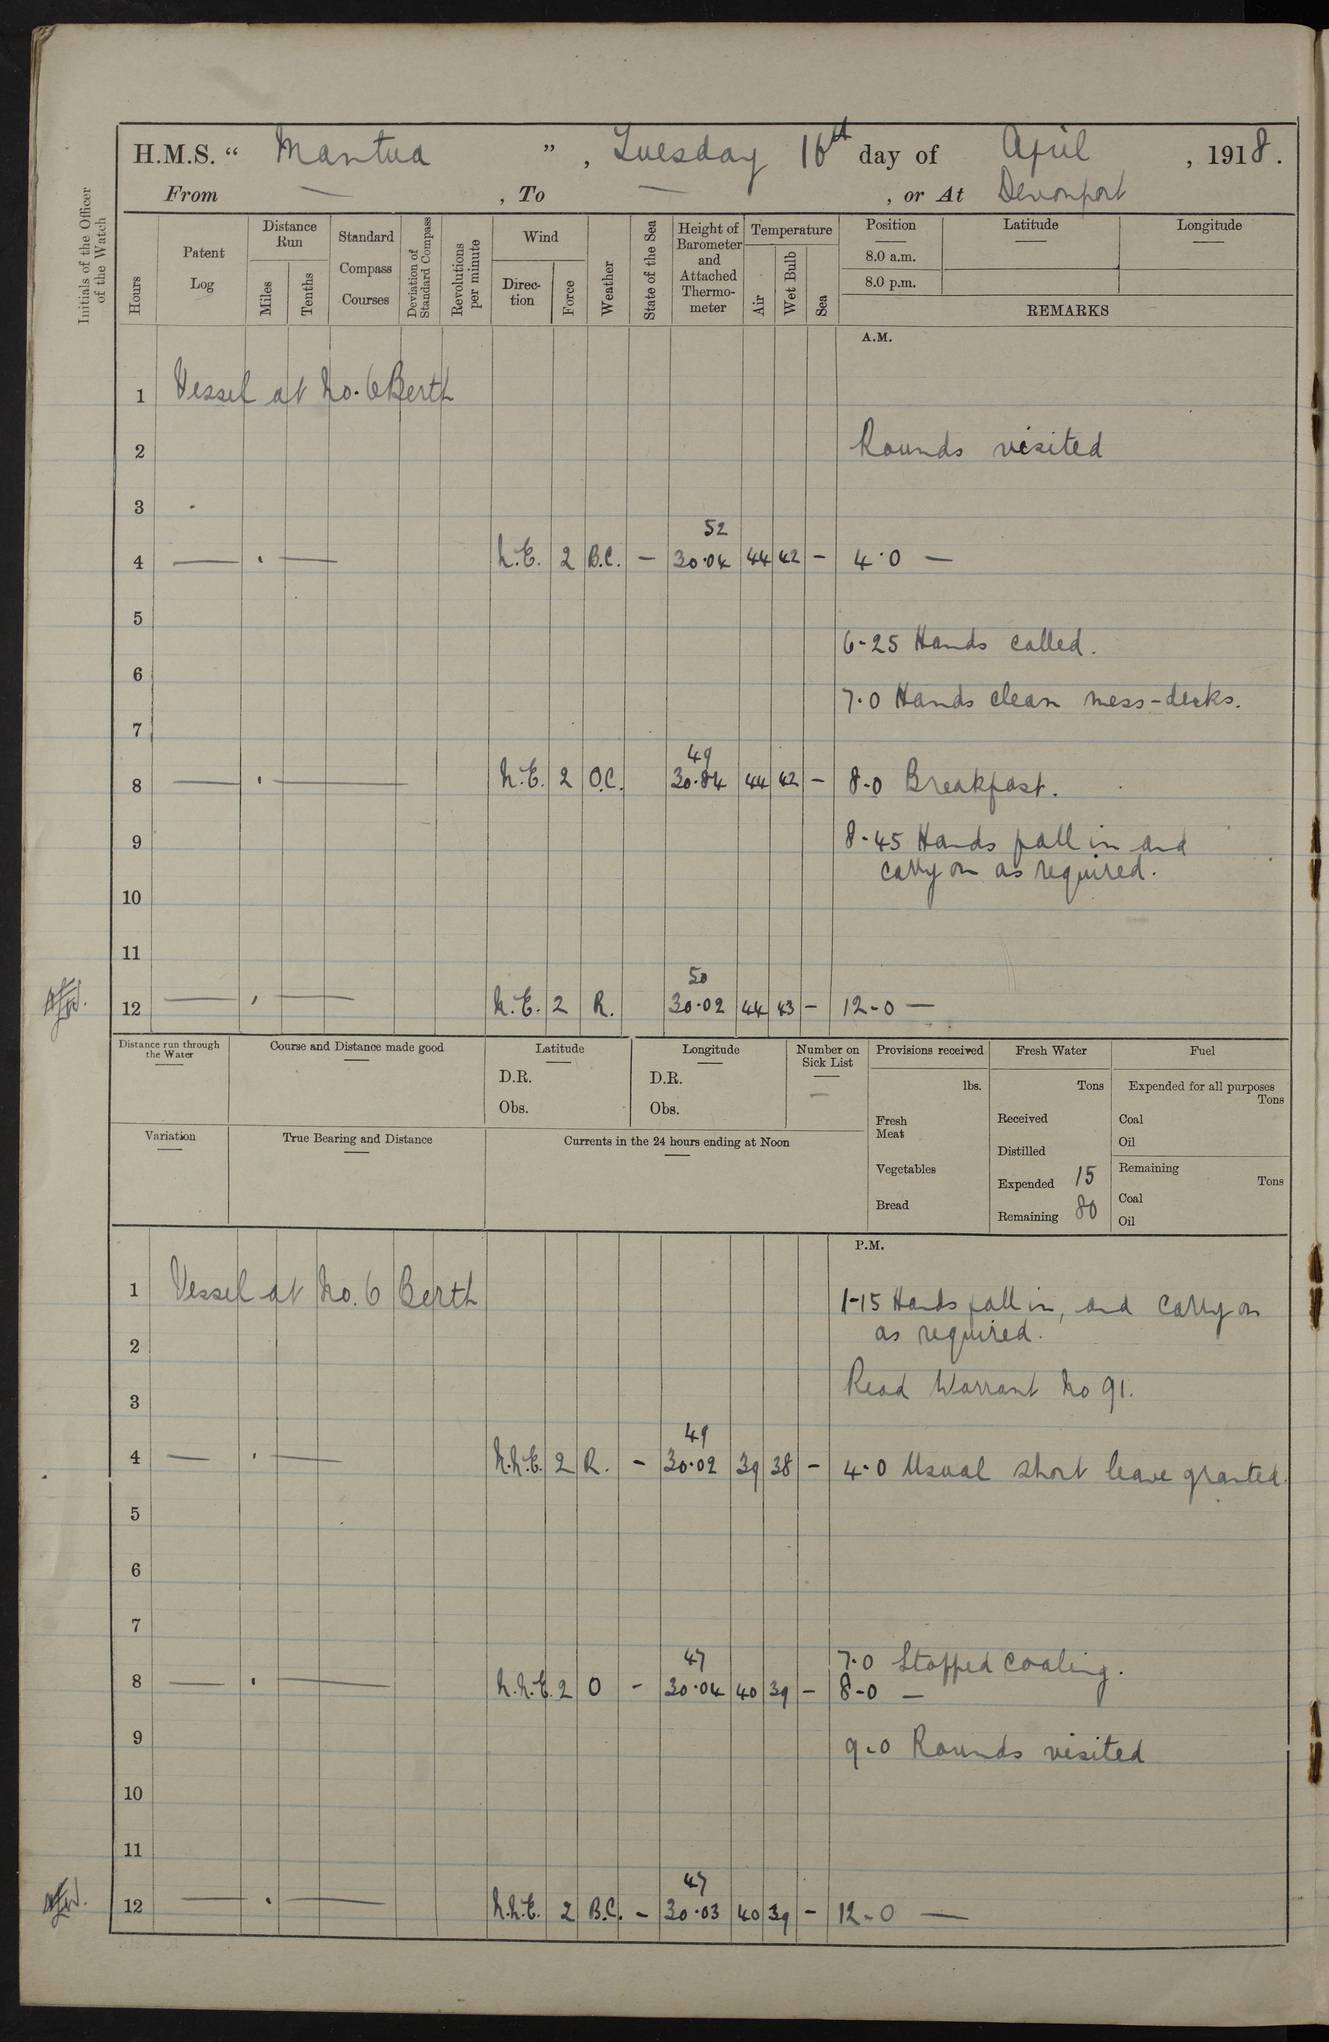 H.M.S. “ Mantua ” , Tuesday 16th day of April , 1918.
From — , To — , or At Devonport
Initials of the Officer of the Watch
Hours
Patent Log
Distance Run
Miles
Tenths
Standard Compass Courses
Deviation of Standard Compass
Revolutions per minute
Wind
Direction
Force
Weather
State of the Sea
Height of Barometer and Attached Thermometer
Temperature
Air
Wet Bulb
Sea
Position
8.0 a.m.
8.0 p.m.
Latitude
Longitude
REMARKS
A.M.
1 Vessel at No. 6 Berth
2 Rounds visited
3
52
4 — . — N.E. 2 B.C. – 30.04 44 42 – 4.0 —
5
6-25 Hands called.
6
7.0 Hands clean mess-decks.
7
49
8 — . — N.E. 2 O.C. 30.84 44 42 – 8-0 Breakfast.
9 8-45 Hands fall in and
carry on as required.
10
11
50
12 — . — N.E. 2 R. 30.02 44 43 – 12-0 —
Distance run through the Water
Course and Distance made good
Latitude
D.R.
Obs.
Longitude
D.R.
Obs.
Number on Sick List
—
Provisions received
lbs.
Fresh Meat
Vegetables
Bread
Fresh Water
Tons
Received
Distilled
Expended 15
Remaining 80
Fuel
Expended for all purposes
Tons
Coal
Oil
Remaining
Tons
Coal
Oil
Variation
True Bearing and Distance
Currents in the 24 hours ending at Noon
P.M.
1 Vessel at No. 6 Berth 1-15 Hands fall in, and carry on
2 as required.
3 Read Warrant No 91.
49
4 — . — N.N.E. 2 R. – 30.02 39 38 – 4.0 Usual short leave granted.
5
6
7
7.0 Stopped coaling.
47
8 — . — N.N.E. 2 O – 30.04 40 39 – 8-0 —
9 9-0 Rounds visited
10
11
47
12 — . — N.N.E. 2 B.C. – 30.03 40 39 – 12-0 —